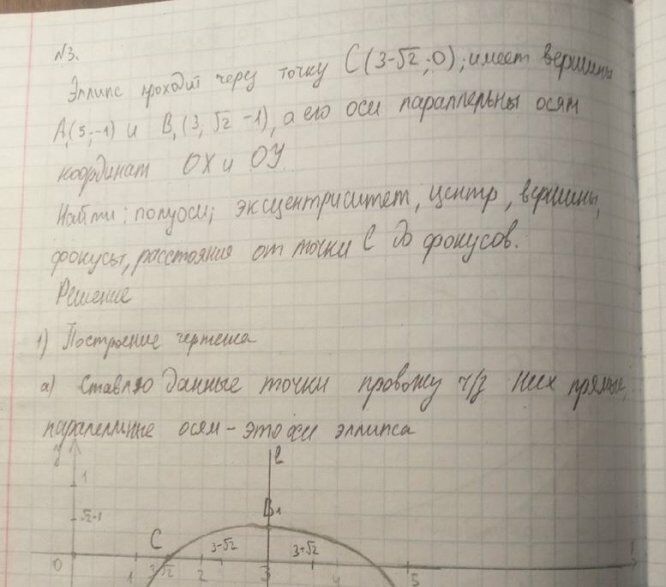 N3.
Эллипс проходит через точку C(3-√2; 0); имеет вершины
A₁(5;-1) и B₁(3, √2 -1), а его оси параллельны осям
координат OX и OY.
Найти: полуоси; эксцентриситет, центр, вершины,
фокусы, расстояния от точки C до фокусов.
Решение
1) Построение чертежа
а) Ставлю данные точки провожу ч/з них прямые,
параллельные осям - это оси эллипса
y
l
1
B₁
√2-1
C
3-√2
3-√2
0
1
3-√2
2
3
4
5